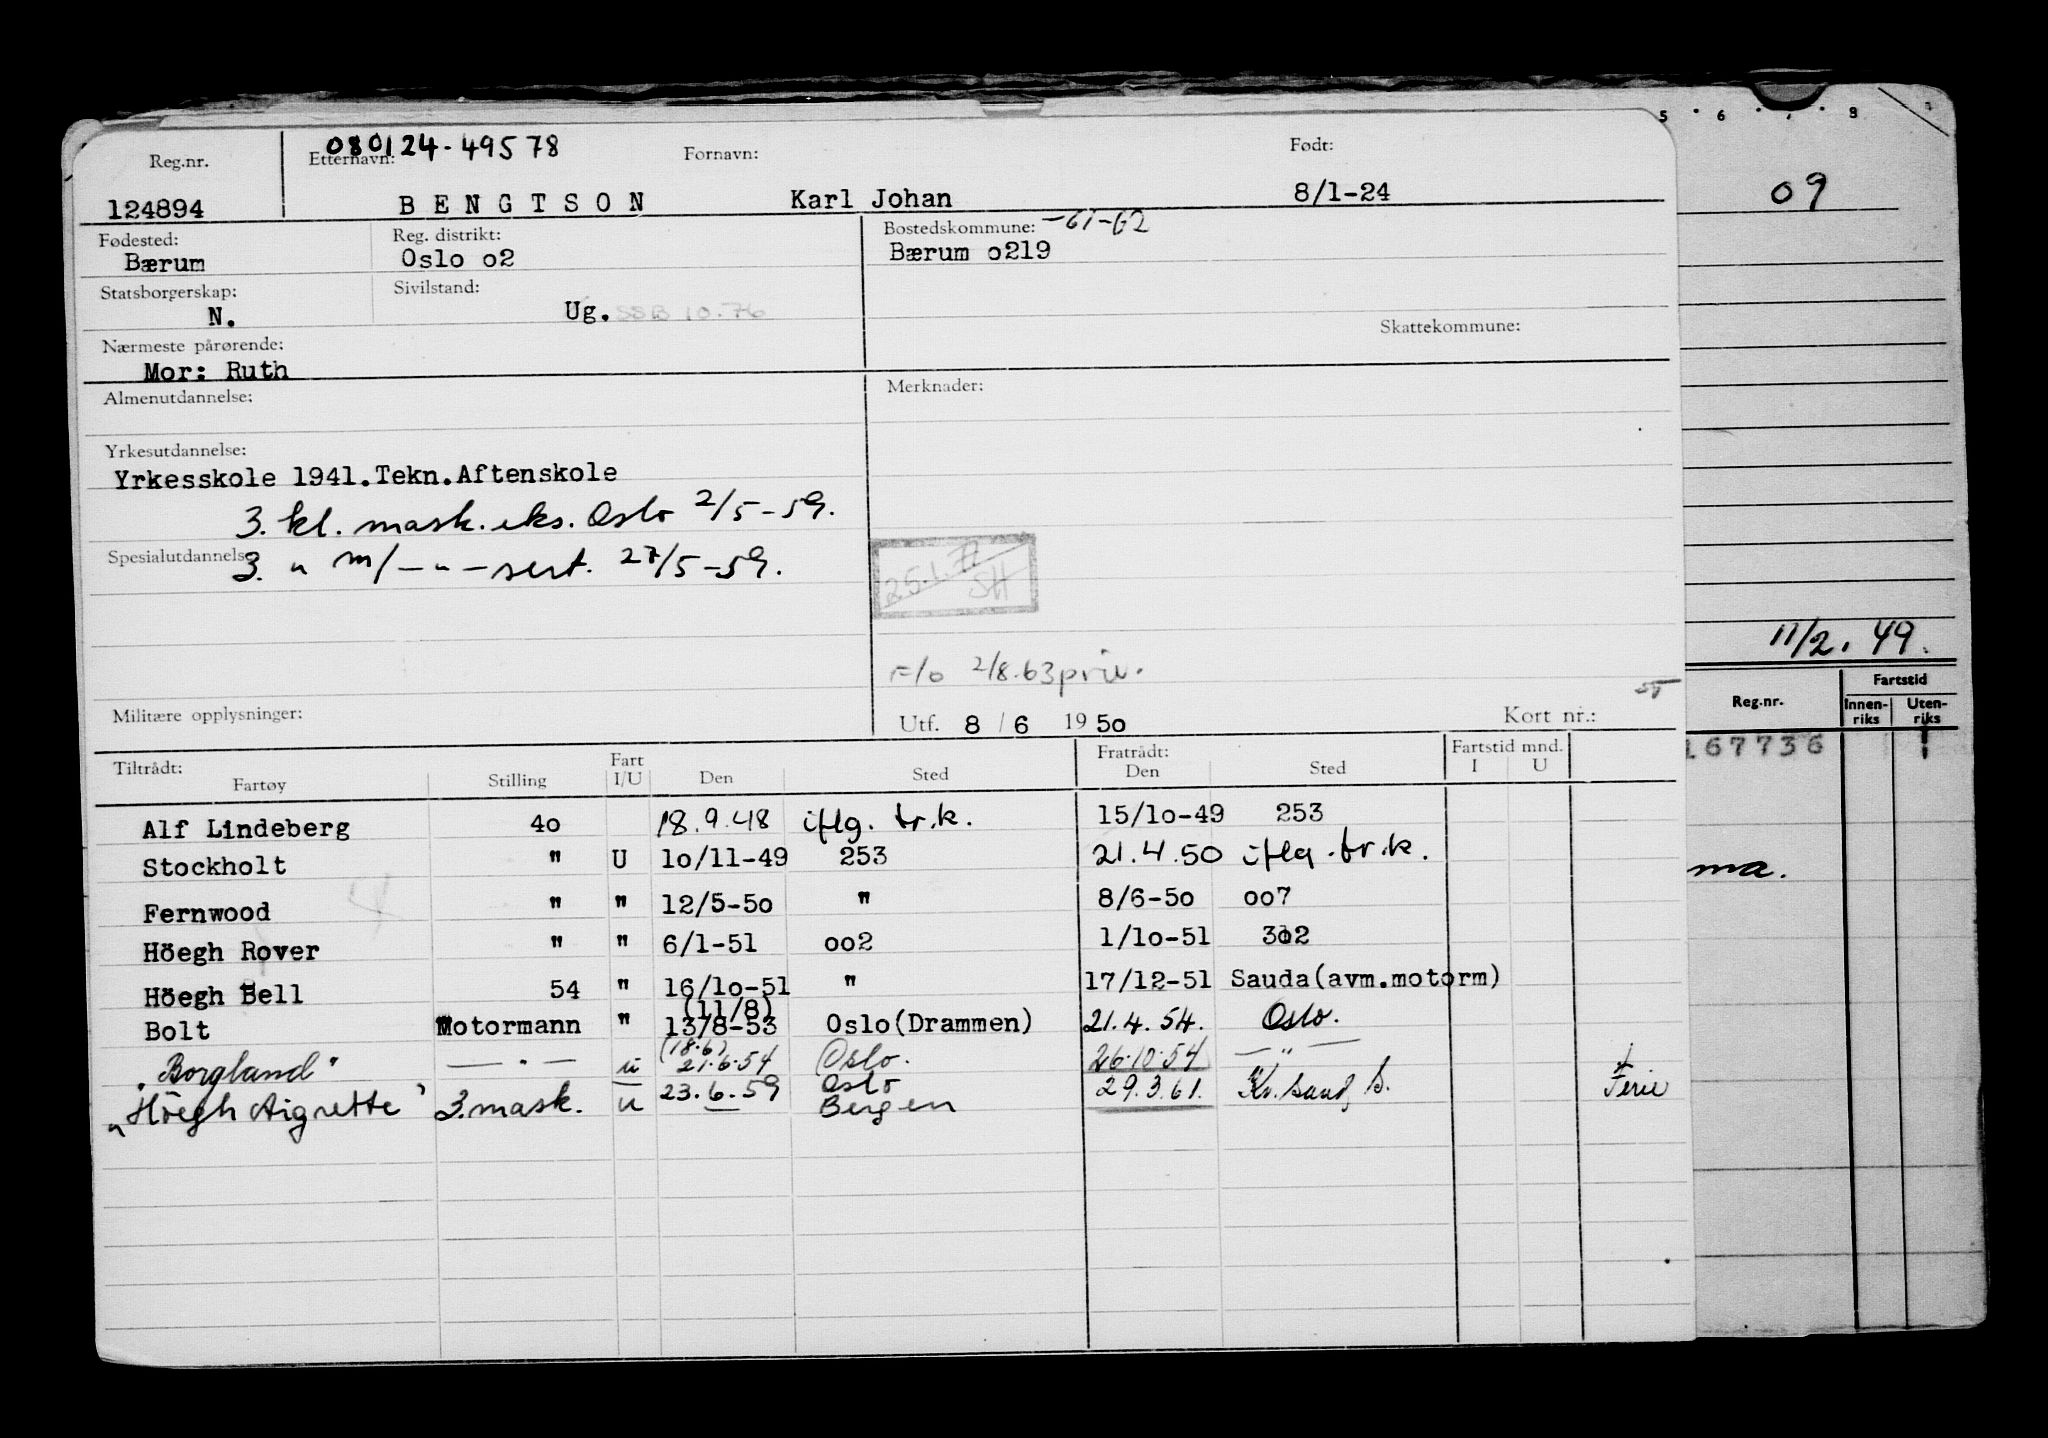 080124-49578
Reg.nr. Etternavn: Fornavn: Født:
124894 BENGTSON Karl Johan 8/1-24
Fødested: Reg. distrikt: Bostedskommune: -61-62
Bærum Oslo o2 Bærum o219
Statsborgerskap: Sivilstand:
N. Ug. SSB 10.76
Skattekommune:
Nærmeste pårørende:
Mor: Ruth
Almenutdannelse: Merknader:
Yrkesutdannelse:
Yrkesskole 1941.Tekn.Aftenskole
3. kl. mask.eks. Oslo 2/5-59.
Spesialutdannelse
3. " m/-"-sert. 27/5-59.
25.1.77
SH
F/o 2/8.63 priv.
Militære opplysninger: Utf. 8/6 1950 Kort nr.:
Tiltrådt: Fart Fratrådt: Fartstid mnd.
Fartøy Stilling I/U Den Sted Den Sted I U
Alf Lindeberg 4o 18.9.48 iflg. tr.k. 15/1o-49 253
Stockholt " U 1o/11-49 253 21.4.50 iflg.tr.k.
Fernwood " " 12/5-5o " 8/6-5o oo7
Höegh Rover " " 6/1-51 oo2 1/1o-51 312
Höegh Bell 54 " 16/1o-51 " 17/12-51 Sauda(avm.motorm)
(11/8)
Bolt Motormann " 13/8-53 Oslo(Drammen) 21.4.54. Oslo.
(18.6)
"Borgland" — " — u 21.6.54 Oslo. 26.10.54 — " —
Oslo
"Höegh Aigrette" 3.mask. u 23.6.59 Bergen 29.3.61. Kr.sand S. Ferie
5 6 7 8
09
11/2.49.
Reg.nr. Fartstid
Innen-riks Uten-riks
167736 1
ma.